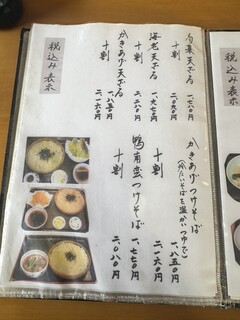 旬菜天ざる 一、七八〇円
十割 二、〇九〇円
海老天ざる 一、九七〇円
十割 二、二八〇円
かきあげ天ざる 一、八五〇円
十割 二、一六〇円
税込み表示
かきあげつけそば 一、八五〇円
(冷たいそばを温かいつゆで)
十割 二、一六〇円
鴨南蛮つけそば 一、七七〇円
十割 二、〇八〇円
税込み表示